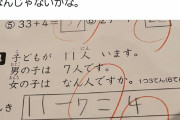 なんじゃないかな。
⑤ 33+4=
子どもが 11人 います。
男の子は 7人です。
女の子は なん人ですか。
しき
11-7=4